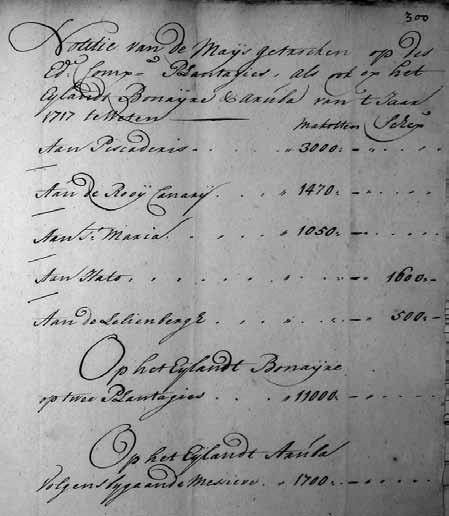 300
Notitie van de Mays getrocken op des
Ed. Comp. Plantagies, als ook op het
Eylandt Bonayre & Aruba van 't Jaar
1717 te Weten
Matotten Schep
Aan Piscaderis . . . . " 3000 : - " . . . -
Aan de Rooy Canary . . . . " 1470 : - . . . . -
Aan St. Maria . . . . . " 1050 : - . . . . -
Aan Hato . . . . . . . . . - 1600 : -
Aan de Lelienbergh . . . " . " . . - 500 : -
Op het Eylandt Bonayre
op twee Plantagies . . . " 11000 . . . . -
Op het Eylandt Aruba
volgens bygaande Messieve . " 1700 : - . . . . -